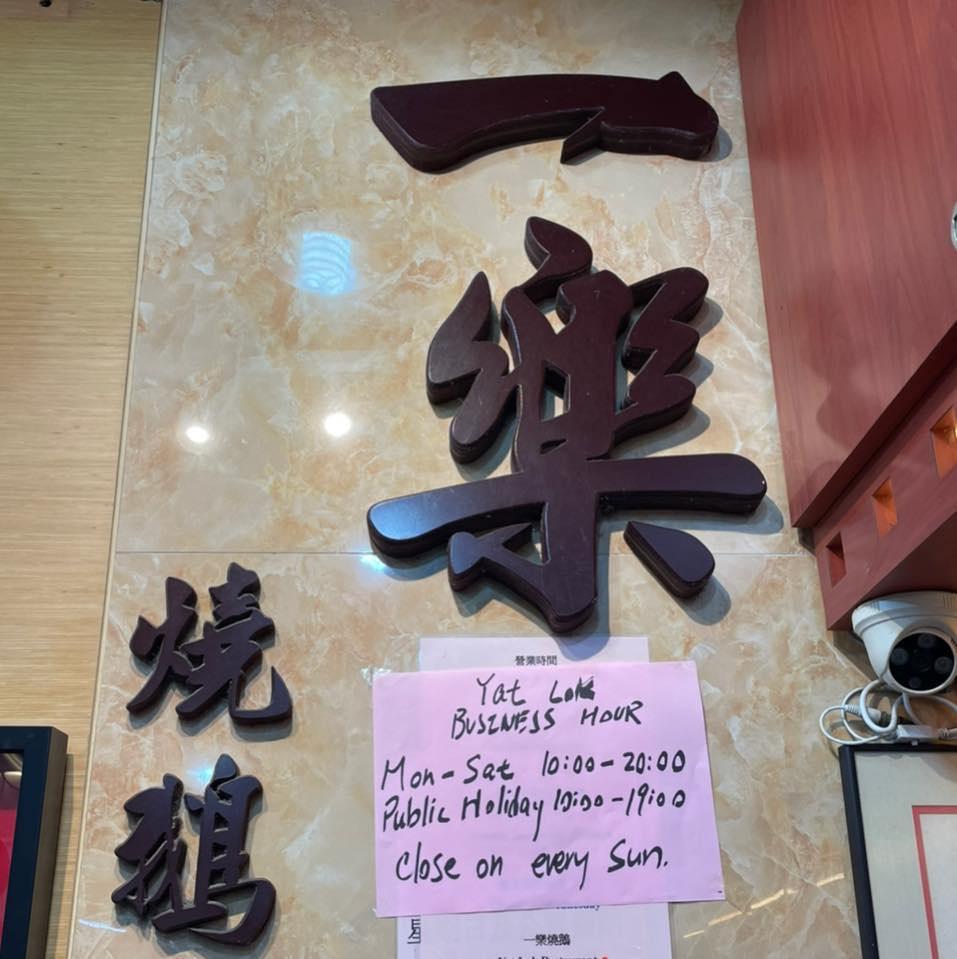 一樂
燒鵝
營業時間
Yat Lok
BUSINESS HOUR
Mon-Sat 10:00-20:00
Public Holiday 10:00-19:00
Close on every Sun.
一樂燒鵝